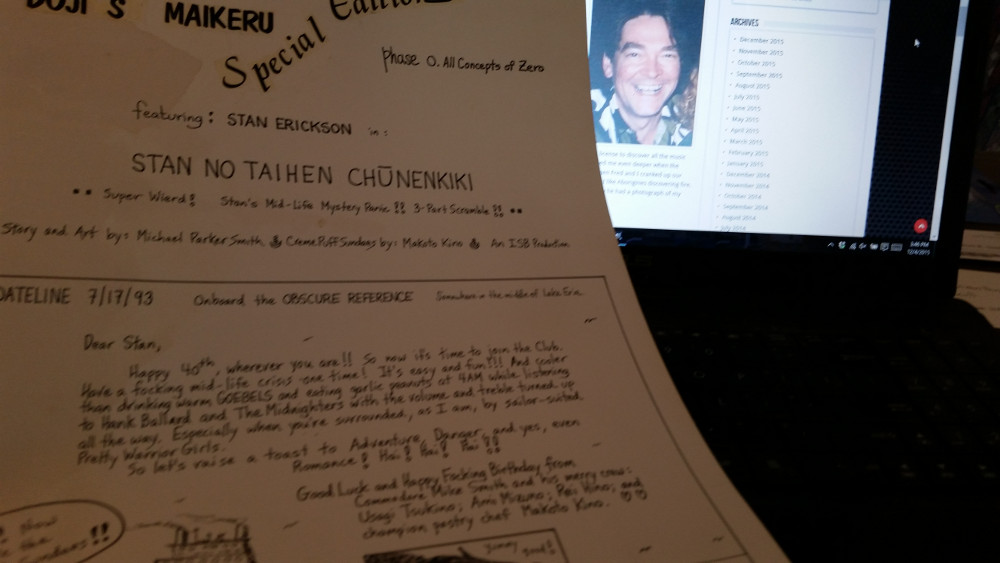 DOJI'S MAIKERU
Special Edition
phase 0. All Concepts of Zero
featuring: STAN ERICKSON in:
STAN NO TAIHEN CHŪNENKIKI
•• Super Wierd!! Stan's Mid-Life Mystery Panic!! 3-Part Scramble!! ••
Story and Art by: Michael Parker Smith Creme Puff Sundays by: Makoto Kino An ISB Production
DATELINE 7/17/93 Onboard the OBSCURE REFERENCE Somewhere in the middle of Lake Erie
Dear Stan,
Happy 40th, wherever you are!! So now it's time to join the Club.
Have a focking mid-life crisis one time! It's easy and fun!!! And cooler
than drinking warm GOEBELS and eating garlic peanuts at 4AM while listening
to Hank Ballard and The Midnighters with the volume and treble turned up
all the way. Especially when you're surrounded, as I am, by sailor-suited
Pretty Warrior Girls.
So let's raise a toast to Adventure, Danger, and yes, even
Romance! Hai! Hai! Hai!!
Good Luck and Happy Focking Birthday from
Commodore Mike Smith and his merry crew:
Usagi Tsukino; Ami Mizuno; Rei Hino; and
champion pastry chef Makoto Kino. ♡♡
show
the
yummy good!
ARCHIVES
December 2015
November 2015
October 2015
September 2015
August 2015
July 2015
June 2015
May 2015
April 2015
March 2015
February 2015
January 2015
December 2014
November 2014
October 2014
September 2014
August 2014
July 2014
to discover all the music
me even deeper when the
Fred and I cracked up our
the Hourglass discovering fire
he had a photograph of my
3:46 PM
12/4/2015